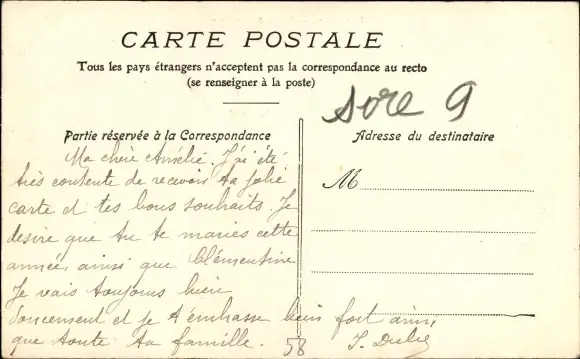 CARTE POSTALE
Tous les pays étrangers n'acceptent pas la correspondance au recto
(se renseigner à la poste)
Sore 9
Partie réservée à la Correspondance
Adresse du destinataire
Ma chère Amélie. J'ai été
très contente de recevoir ta jolie
carte et tes bons souhaits. Je
desire que tu te maries cette
année, ainsi que Clémentine
Je vais toujours bien
doucement et je t'embrasse bien fort ainsi
que toute ta famille.
M
58